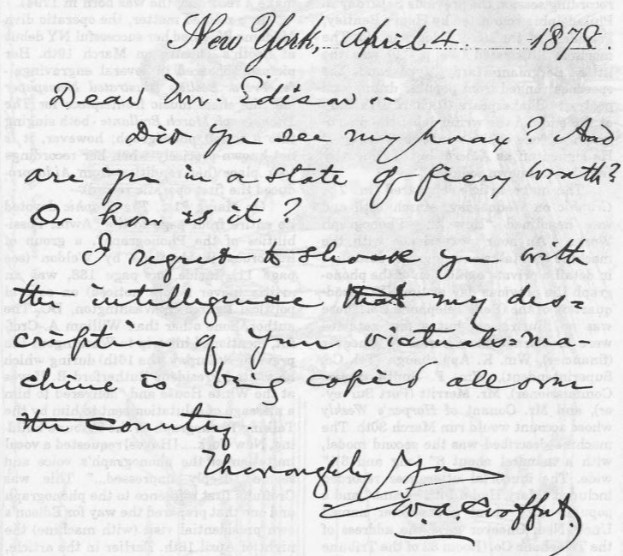 New York, April 4 1878.
Dear Mr. Edison.
Did you see my hoax? And
are you in a state of fiery wrath?
Or how is it?
I regret to shock you with
the intelligence that my des-
cription of your victuals-ma-
chine is being copied all over
the country.
Thoroughly Yours
W. A. Croffut